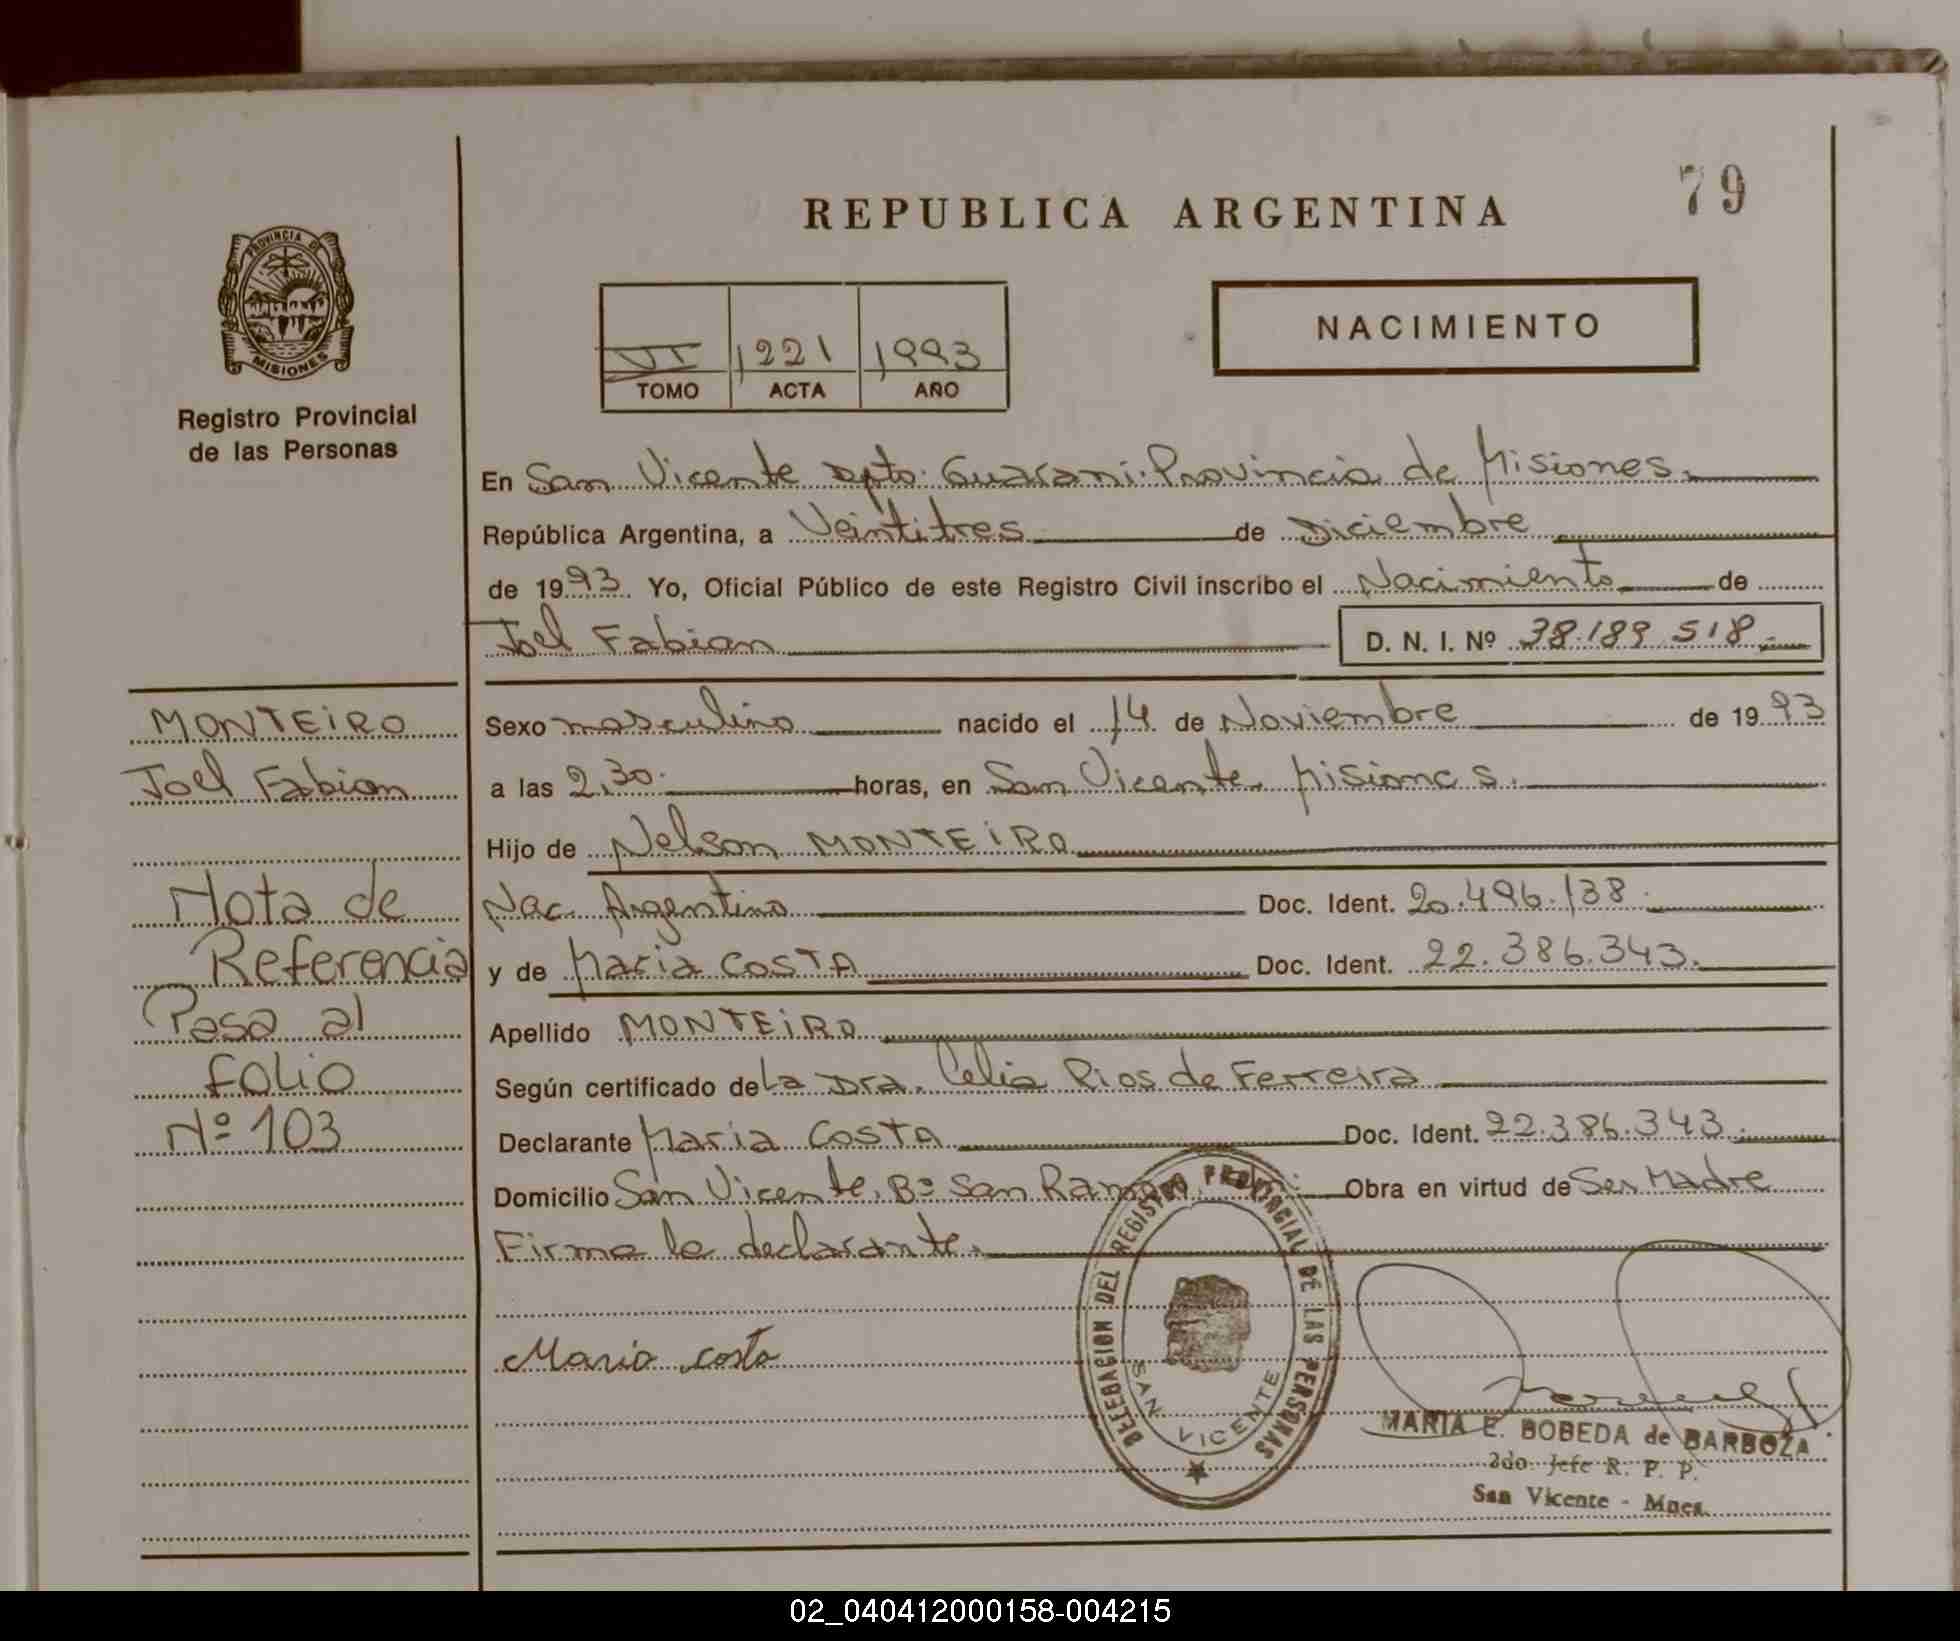 79
REPUBLICA ARGENTINA
PROVINCIA DE
MISIONES
Registro Provincial
de las Personas
VI 1221 1993
TOMO ACTA AÑO
NACIMIENTO
En San Vicente Dpto. Guarani. Provincia de Misiones.
República Argentina, a Veintitres de Diciembre
de 1993. Yo, Oficial Público de este Registro Civil inscribo el Nacimiento de
Joel Fabian D. N. I. Nº 38.189.518.-
MONTEIRO
Joel Fabian
Nota de
Referencia
Pasa al
folio
Nº 103
Sexo masculino nacido el 14 de Noviembre de 1993
a las 2,30. horas, en San Vicente, Misiones.
Hijo de Nelson MONTEIRO
Nac. Argentino Doc. Ident. 20.496.138.
y de Maria COSTA Doc. Ident. 22.386.343.
Apellido MONTEIRO
Según certificado de La Dra. Celia Rios de Ferreira
Declarante Maria COSTA Doc. Ident. 22.386.343.
Domicilio San Vicente, Bº San Ramon. Obra en virtud de Ser Madre
Firma la declarante.
Maria costa
DELEGACION DEL REGISTRO PROVINCIAL DE LAS PERSONAS
SAN VICENTE
MARIA E. BOBEDA de BARBOZA
2do. Jefe R. P. P.
San Vicente - Mnes.
02_040412000158-004215